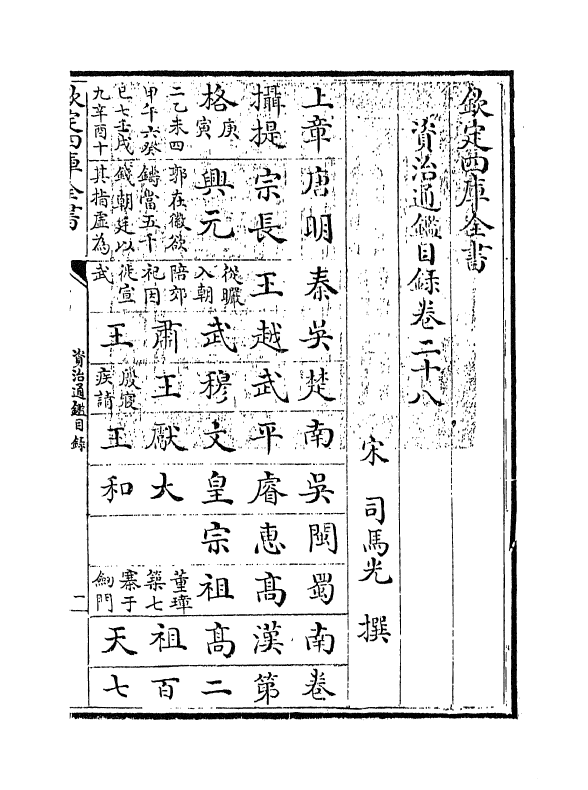 欽定四庫全書
資治通鑑目錄卷二十八
宋 司馬光 撰
上章
攝提
格庚
寅
二乙未四
甲午六癸
巳七壬戌
九辛酉十
唐明
宗長
興元
郭在徽欲
鑄當五千
錢朝廷以
其指虛為
秦
王
從曮
入朝
陪郊
祀因
徙宣
武
吳
越
武
肅
王
楚
武
穆
王
殷寢
疾請
南
平
文
獻
王
吳
睿
皇
大
和
閩
惠
宗
蜀
高
祖
董璋
築七
寨于
劍門
南
漢
高
祖
天
卷
第
二
百
七
欽定四庫全書
資治通鑑目錄
二